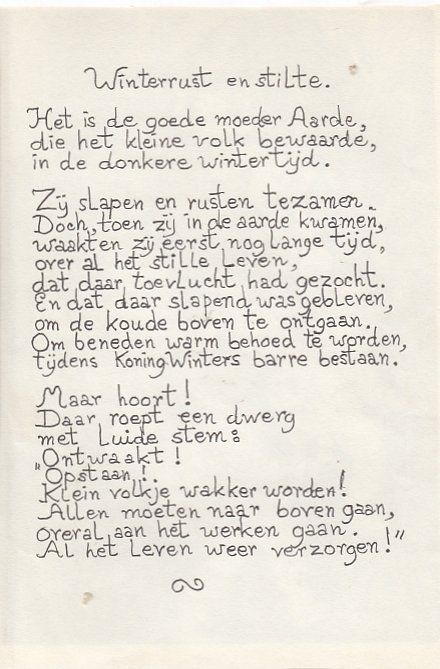 Winterrust en stilte.
Het is de goede moeder Aarde,
die het kleine volk bewaarde,
in de donkere wintertijd.
Zij slapen en rusten tezamen.
Doch, toen zij in de aarde kwamen,
waakten zij eerst nog lange tijd,
over al het stille Leven,
dat daar toevlucht had gezocht.
En dat daar slapend was gebleven,
om de koude boven te ontgaan.
Om beneden warm behoed te worden,
tijdens Koning Winters barre bestaan.
Maar hoort!
Daar roept een dwerg
met luide stem:
"Ontwaakt!
Opstaan!.
Klein volkje wakker worden!
Allen moeten naar boven gaan,
overal aan het werken gaan.
Al het Leven weer verzorgen!"